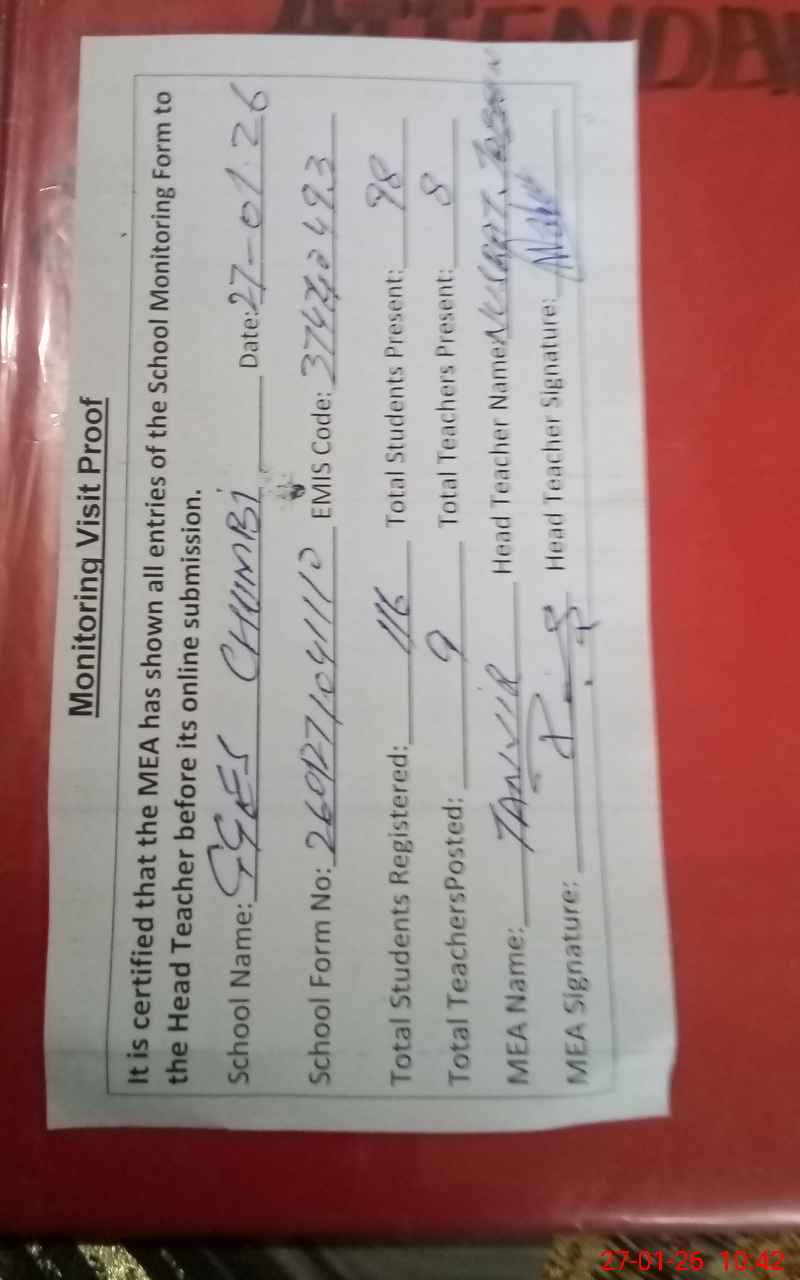 ATTENDAN
Monitoring Visit Proof
It is certified that the MEA has shown all entries of the School Monitoring Form to
the Head Teacher before its online submission.
School Name: GGES CHUMBI Date: 27-01-26
School Form No: EMIS Code:
Total Students Registered: 116 Total Students Present: 98
Total TeachersPosted: 9 Total Teachers Present: 8
MEA Name: TANVIR Head Teacher Name: NUSRAT
MEA Signature: Head Teacher Signature:
27-01-26 10:42